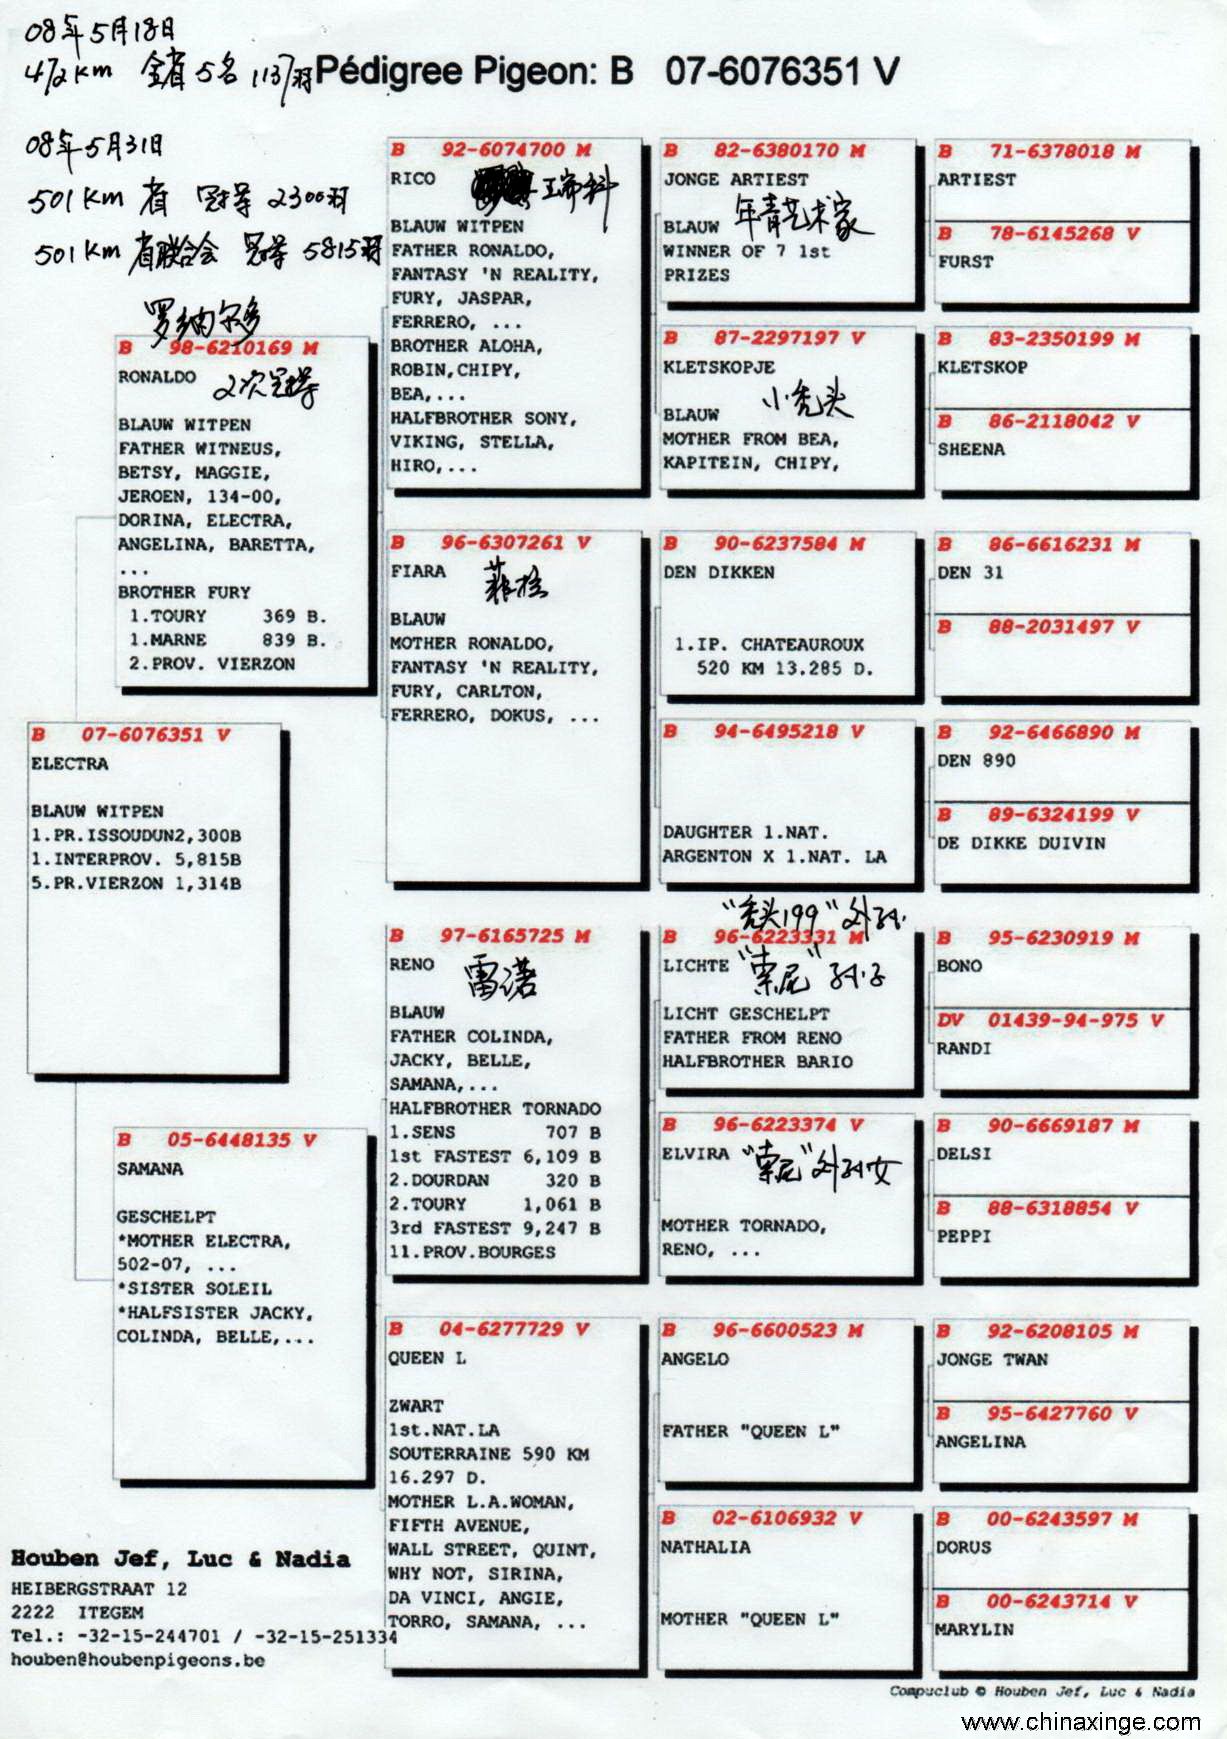 08年5月18日
472km 全省5名 1137羽
Pédigree Pigeon: B 07-6076351 V
08年5月31日
501km 省 冠军 2300羽
501km 省联合会 冠军 5815羽
罗纳尔多
B 98-6210169 M
RONALDO 2次冠军
BLAUW WITPEN
FATHER WITNEUS,
BETSY, MAGGIE,
JEROEN, 134-00,
DORINA, ELECTRA,
ANGELINA, BARETTA,
...
BROTHER FURY
1.TOURY 369 B.
1.MARNE 839 B.
2.PROV. VIERZON
B 07-6076351 V
ELECTRA
BLAUW WITPEN
1.PR.ISSOUDUN2,300B
1.INTERPROV. 5,815B
5.PR.VIERZON 1,314B
B 05-6448135 V
SAMANA
GESCHELPT
*MOTHER ELECTRA,
502-07, ...
*SISTER SOLEIL
*HALFSISTER JACKY,
COLINDA, BELLE,...
B 92-6074700 M
RICO 瑞科
BLAUW WITPEN
FATHER RONALDO,
FANTASY 'N REALITY,
FURY, JASPAR,
FERRERO, ...
BROTHER ALOHA,
ROBIN,CHIPY,
BEA,...
HALFBROTHER SONY,
VIKING, STELLA,
HIRO,...
B 96-6307261 V
FIARA
BLAUW
MOTHER RONALDO,
FANTASY 'N REALITY,
FURY, CARLTON,
FERRERO, DOKUS, ...
B 97-6165725 M
RENO 雷诺
BLAUW
FATHER COLINDA,
JACKY, BELLE,
SAMANA,...
HALFBROTHER TORNADO
1.SENS 707 B
1st FASTEST 6,109 B
2.DOURDAN 320 B
2.TOURY 1,061 B
3rd FASTEST 9,247 B
11.PROV.BOURGES
B 04-6277729 V
QUEEN L
ZWART
1st.NAT.LA
SOUTERRAINE 590 KM
16.297 D.
MOTHER L.A.WOMAN,
FIFTH AVENUE,
WALL STREET, QUINT,
WHY NOT, SIRINA,
DA VINCI, ANGIE,
TORRO, SAMANA, ...
B 82-6380170 M
JONGE ARTIEST
BLAUW 年青艺术家
WINNER OF 7 1st
PRIZES
B 87-2297197 V
KLETSKOPJE
小秃头
BLAUW
MOTHER FROM BEA,
KAPITEIN, CHIPY,
B 90-6237584 M
DEN DIKKEN
1.IP. CHATEAUROUX
520 KM 13.285 D.
B 94-6495218 V
DAUGHTER 1.NAT.
ARGENTON X 1.NAT. LA
"秃头199"外孙
B 96-6223331 M
LICHTE "索尼"孙子
LICHT GESCHELPT
FATHER FROM RENO
HALFBROTHER BARIO
B 96-6223374 V
ELVIRA "索尼"外孙女
MOTHER TORNADO,
RENO, ...
B 96-6600523 M
ANGELO
FATHER "QUEEN L"
B 02-6106932 V
NATHALIA
MOTHER "QUEEN L"
B 71-6378018 M
ARTIEST
B 78-6145268 V
FURST
B 83-2350199 M
KLETSKOP
B 86-2118042 V
SHEENA
B 86-6616231 M
DEN 31
B 88-2031497 V
B 92-6466890 M
DEN 890
B 89-6324199 V
DE DIKKE DUIVIN
B 95-6230919 M
BONO
DV 01439-94-975 V
RANDI
B 90-6669187 M
DELSI
B 88-6318854 V
PEPPI
B 92-6208105 M
JONGE TWAN
B 95-6427760 V
ANGELINA
B 00-6243597 M
DORUS
B 00-6243714 V
MARYLIN
Houben Jef, Luc & Nadia
HEIBERGSTRAAT 12
2222 ITEGEM
Tel.: -32-15-244701 / -32-15-251334
houben@houbenpigeons.be
Compuclub © Houben Jef, Luc & Nadia
www.chinaxinge.com